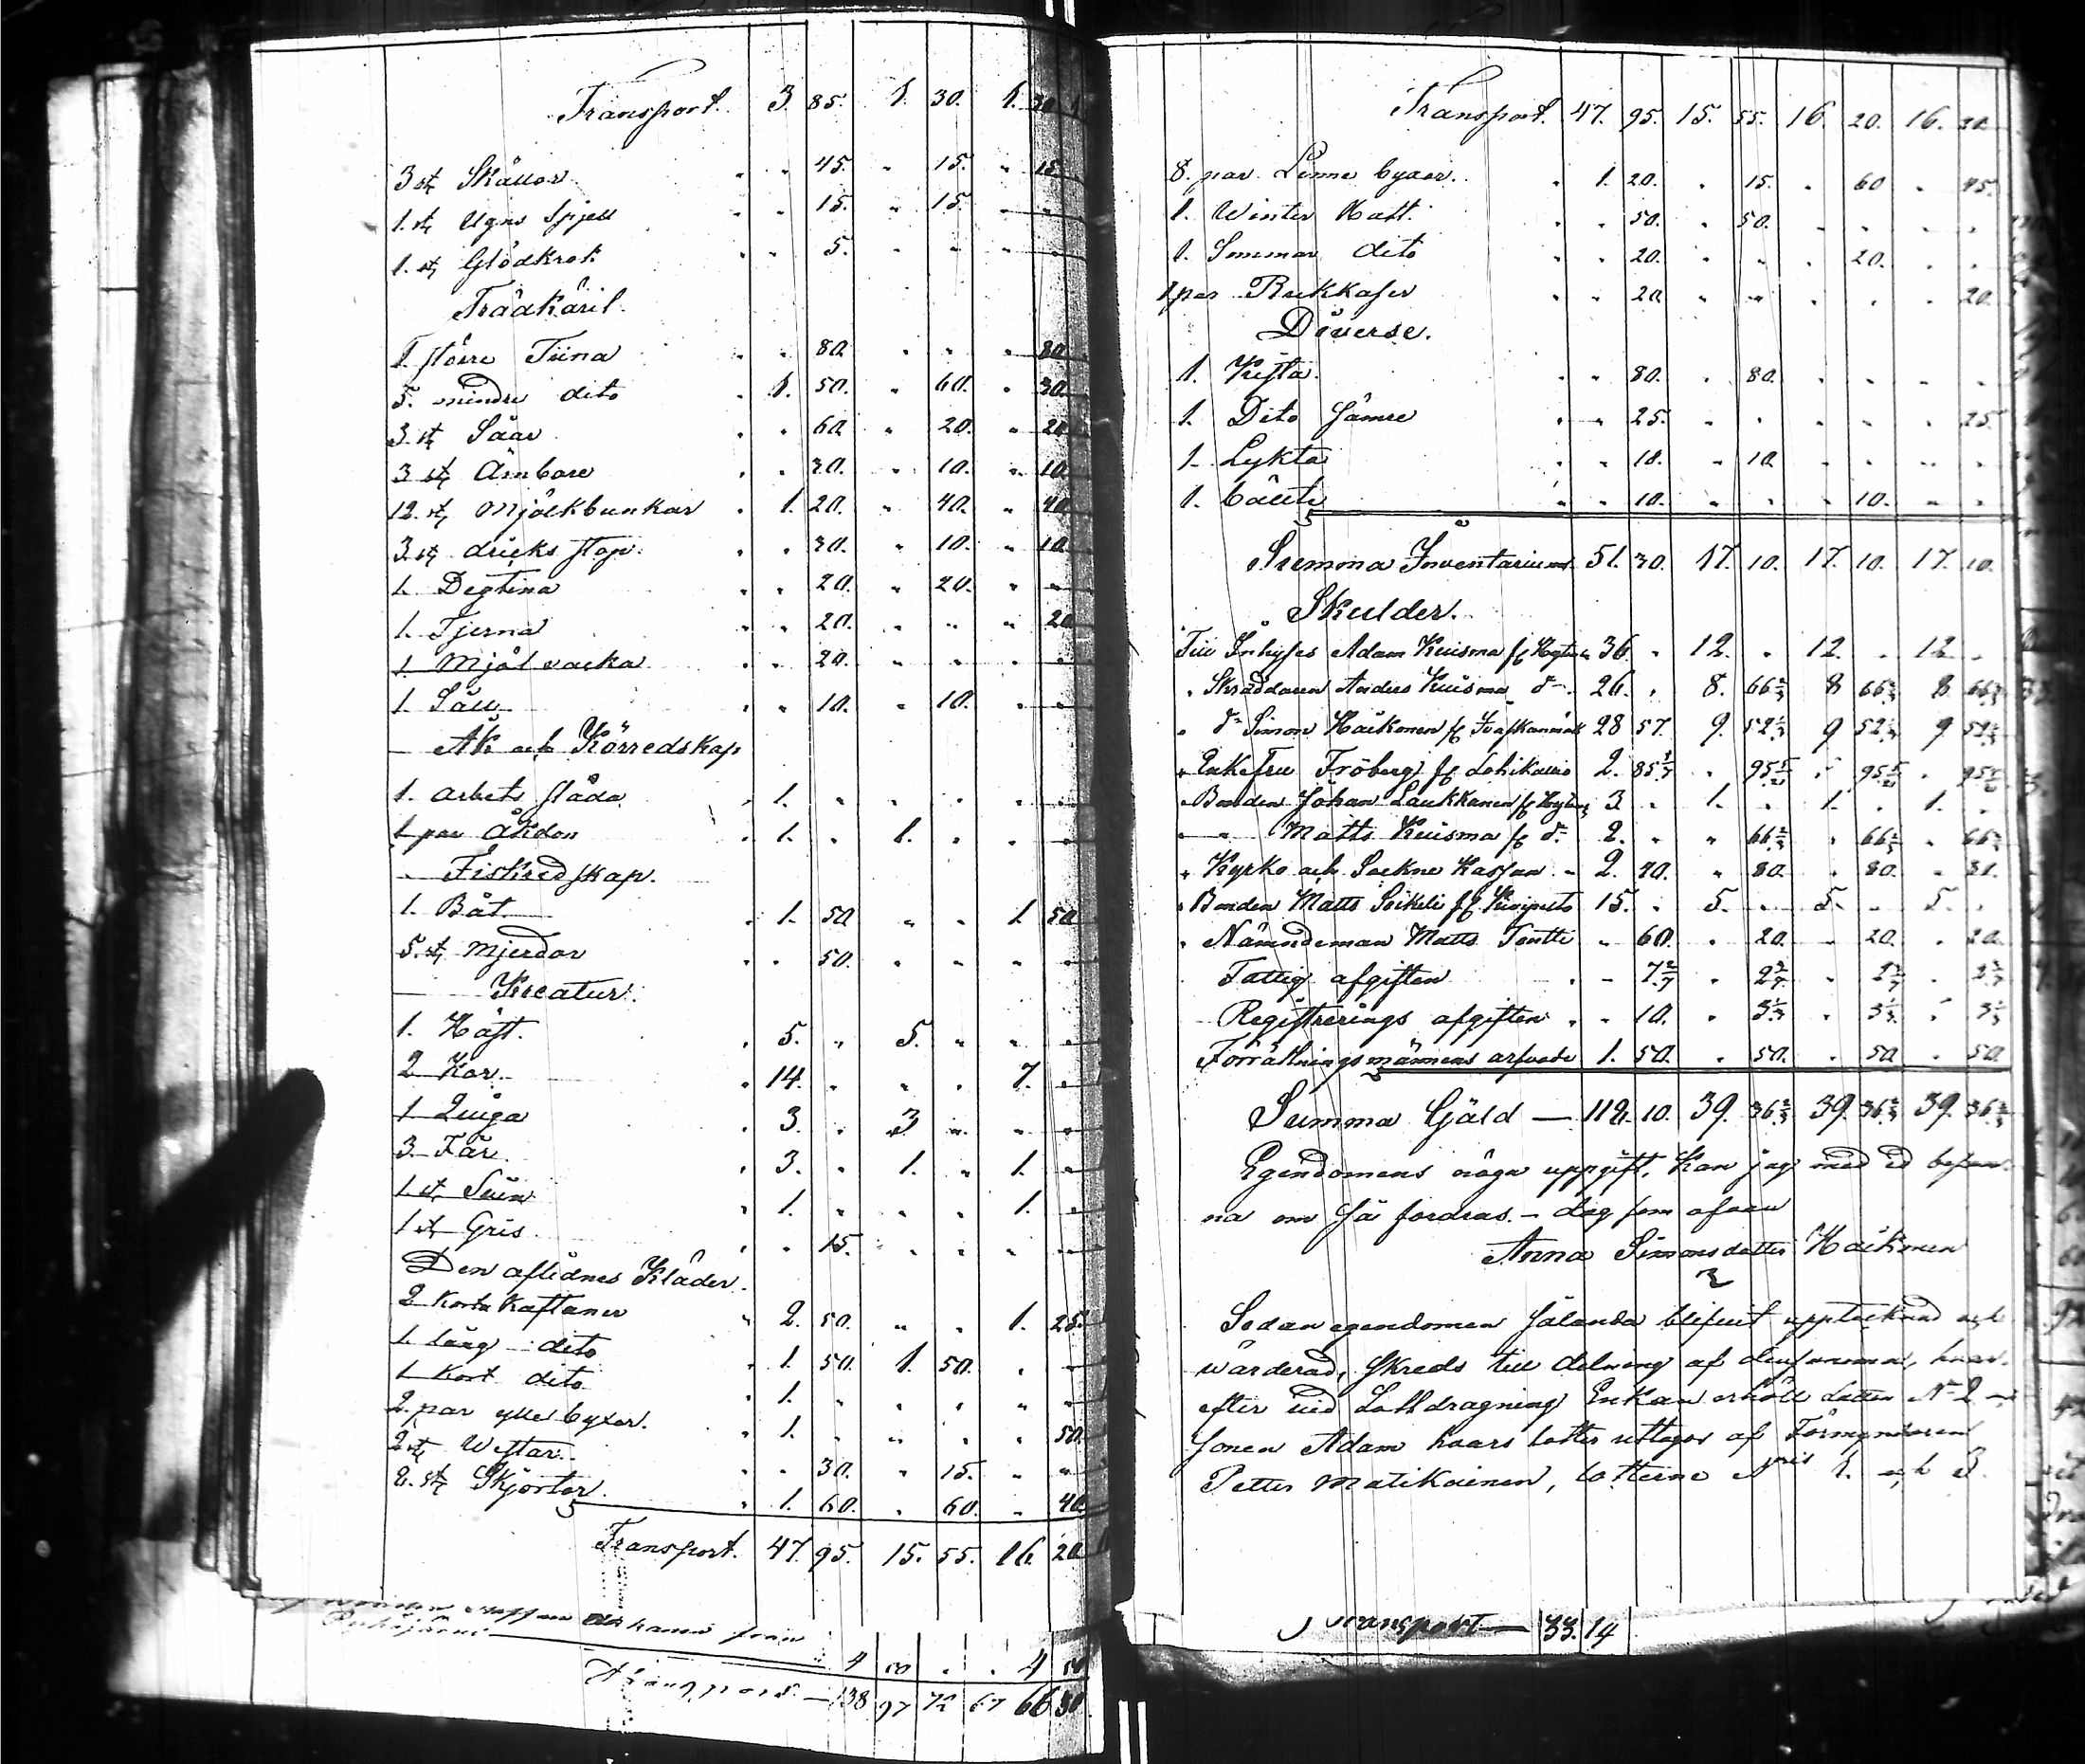 Transport. 3. 85. 1. 30. 1.
3 st Skållor " " 45. " 15. " 15.
1. st Ugns spjell " " 15. " 15. " "
1. st Glödkrok " " 5. " " " "
Trädkäril.
1 större Tiina " " 80. " " " 80.
5. mindre dito " 1. 50. " 60. " 30.
3 st Såar " " 60. " 20. " 20.
3 st Ämbare " " 30. " 10. " 10.
12. st Mjölkbunkar " 1. 20. " 40. " 40.
3 st dricks stop " " 30. " 10. " 10.
1. Degtina " " 20. " 20. " "
1. Tjerna " " 20. " " " 20
1 Mjöl wacka " " 20. " " " "
1. Såll " " 10. " 10. " "
Åk och Körredskap
1. arbets släda " 1. " " " " "
1 par åkdon " 1. " 1. " " "
Fiskredskap.
1. Båt " 1. 50 " " 1. 50
5. st Mjerdor " " 50. " " " "
Kreatur.
1. Häst. " 5. " 5. " " "
2 Kor. " 14. " " " 7. "
1 Quiga " 3. " 3 " " "
3 Får. " 3. " 1. " 1. "
1 st Suin " 1. " " " 1. "
1 st Gris " " 15. " " " "
Den aflidnes Kläder.
2 Korta Kaftaner " 2. 50. " " 1. 25.
1. lång dito " 1. 50. 1. 50. " "
1 Kort dito " 1. " " " " "
2. par ylle byxor. " 1. " " " " 50.
2 st Westar " " 30. " 15. " "
8. st Skjortor. " 1. 60. " 60. " 40
Transport. 47. 95. 15. 55. 16. 20
från
4 50 " " 4 50
Transport. 138 97 72 67 66 30
Transport. 47. 95. 15. 55. 16. 20. 16. 20
8. par Linne byxor. " 1. 20. " 15. " 60 " 45.
1. Winter Hatt. " " 50. " 50. " " " "
1. Sommar dito " " 20. " " " 20. " "
1 par Rukkaser " " 20 " " " " " 20.
Diverse.
1. Kista. " " 80. " 80. " " " "
1. Dito sämre " " 25. " " " " " 25.
1. Lykta " " 10. " 10. " " " "
1. bälte " " 10. " " " 10. " "
Summa Inventarium 51. 30. 17. 10. 17. 10. 17. 10.
Skulder.
Till Inhyses Adam Kuisma 36. " 12. " 12. " 12 "
" Skräddaren Anders Kuisma d:o 26. " 8. 66 2/3 8 66 2/3 8 66 2/3
" d:o Simon Haikonen 28 57. 9. 52 1/3 9 52 1/3 9 52 1/3
" Enkefru Fröberg 2. 85 5/7 " 95 5/21 " 95 5/21 " 95 5/21
" Bonden Johan Laukkanen 3 " 1. " 1. " 1. "
" " Matts Kuisma d:o 2. " " 66 2/3 " 66 2/3 " 66 2/3
" Kyrko och Sockne Kassan " 2. 40. " 80. " 80. " 80.
" Bonden Matts 15. " 5. " 5. " 5. "
" Nämndeman Matts Tontti " 60. " 20. " 20. " 20
Fattig afgiften " " 7 2/7 " 2 3/7 " 2 3/7 " 2 3/7
Registrerings afgiften " " 10. " 3 1/3 " 3 1/3 " 3 1/3
Förrättningsmännens arfvode 1. 50. " 50. " 50 " 50
Summa Gäld — 118. 10. 39. 36 2/3 39. 36 2/3 39. 36 2/3
Egendomens noga uppgift, Kan jag med ed besan-
na om så fordras. — dag som ofvan
Anna Simonsdotter Haikonen
Sedan egendomen sålunda blifvit upptecknad och
wärderad, skreds till delning af densamma, hvar-
efter vid Lottdragning Enkan erhöll Lotten N:o 2 —
sonen Adam hvars lotter uttogos af Förmyndaren
Petter Matikainen, lotterne N:ris 1. och 3.
Transport — 33. 14